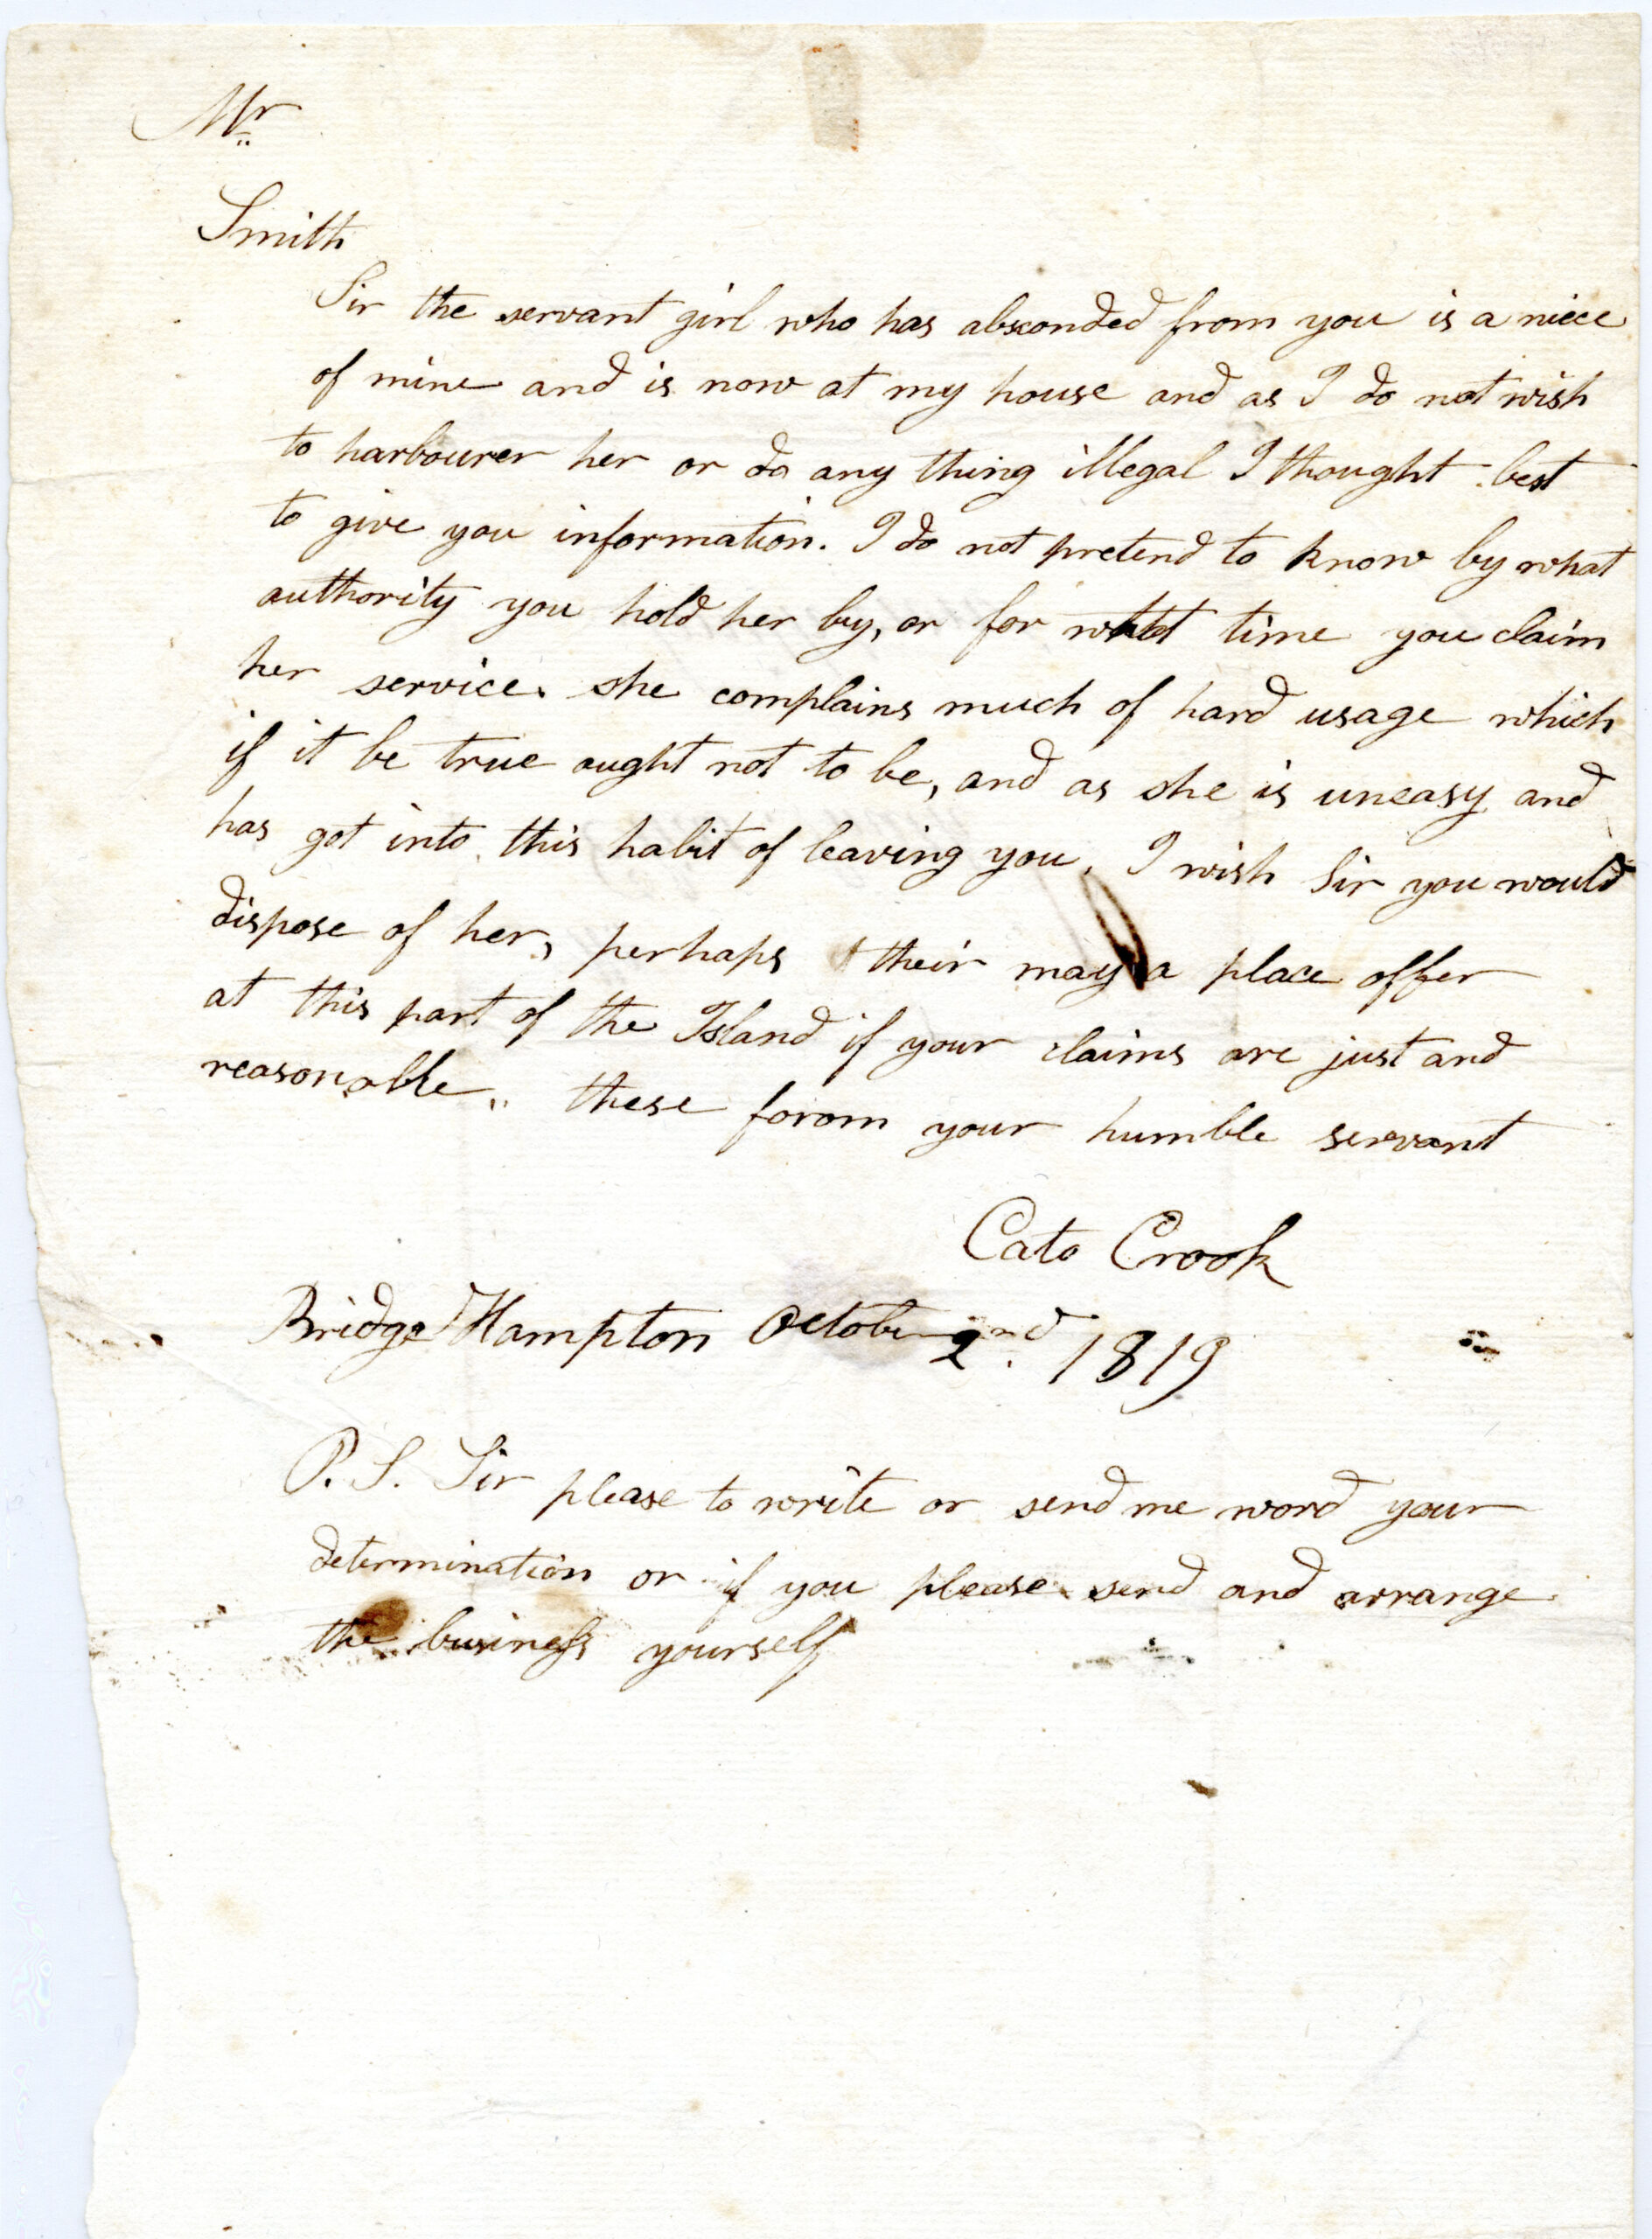 Mr
Smith
Sir the servant girl who has absconded from you is a niece
of mine and is now at my house and as I do not wish
to harbourer her or do any thing illegal I thought best
to give you information. I do not pretend to know by what
authority you hold her by, or for what time you claim
her service. she complains much of hard usage which
if it be true ought not to be, and as she is uneasy and
has got into this habit of leaving you, I wish Sir you would
dispose of her, perhaps their may a place offer
at this part of the Island if your claims are just and
reasonable,, these forom your humble servant
Cato Crook
Bridge Hampton October 2nd. 1819
P. S. Sir please to write or send me word your
determination or if you please send and arrange
the business yourself